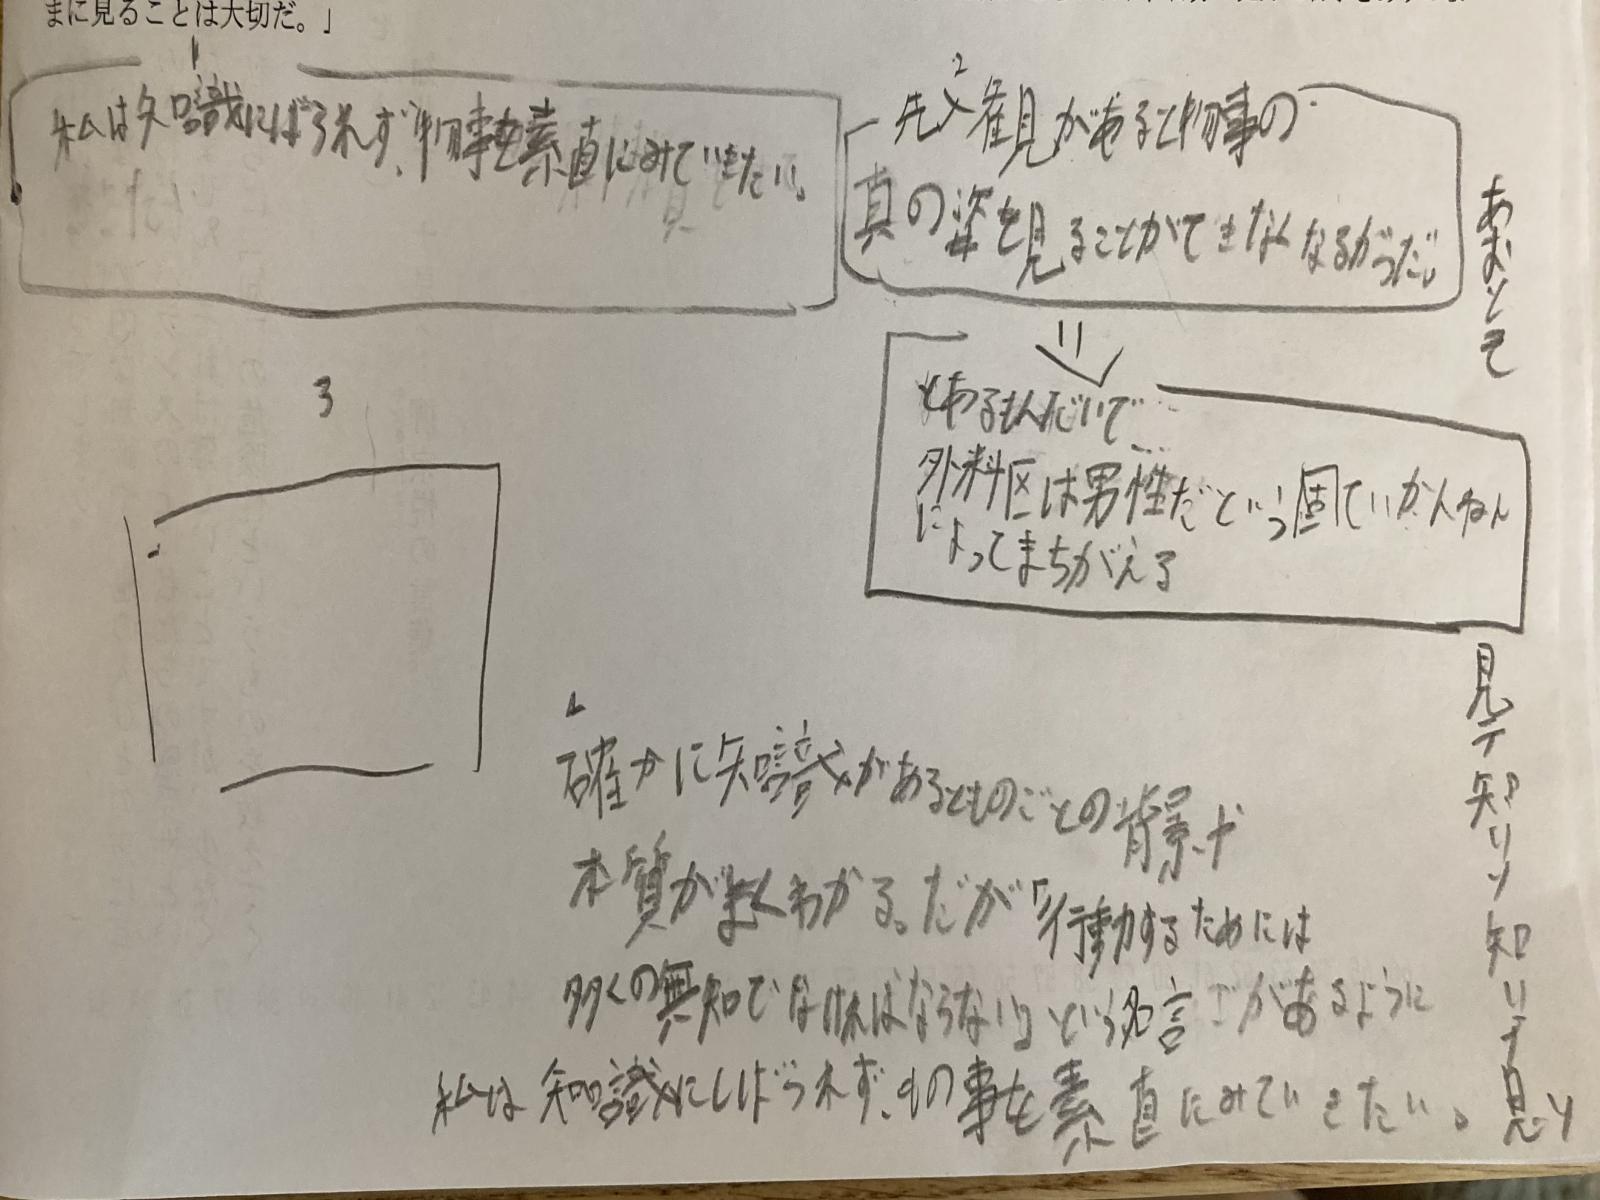 まに見ることは大切だ。」
1
私は知識にばられず、物事を素直にみていきたい。
2
先入観があると物事の
真の姿を見ることができなくなるがらだ。
とあるもんだいで
外料区は男性だという固ていかんねん
によってまちがえる
3
4
確かに知識があるとものごとの背景や
本質がよくわかる。だが「行動するためには
多くの無知でなければならない」という名言ごがあるように
私は知識にしばられず、もの事を素直にみていきたい。
あおとそ
見テ知リソ知リテ見ソ